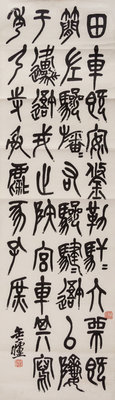 田車孔安鋚勒馯四介既
簡左驂旛右驂騝避以隮
于邍避戎止陝宮車其寫
秀弓寺射麋豕孔庶
缶廬